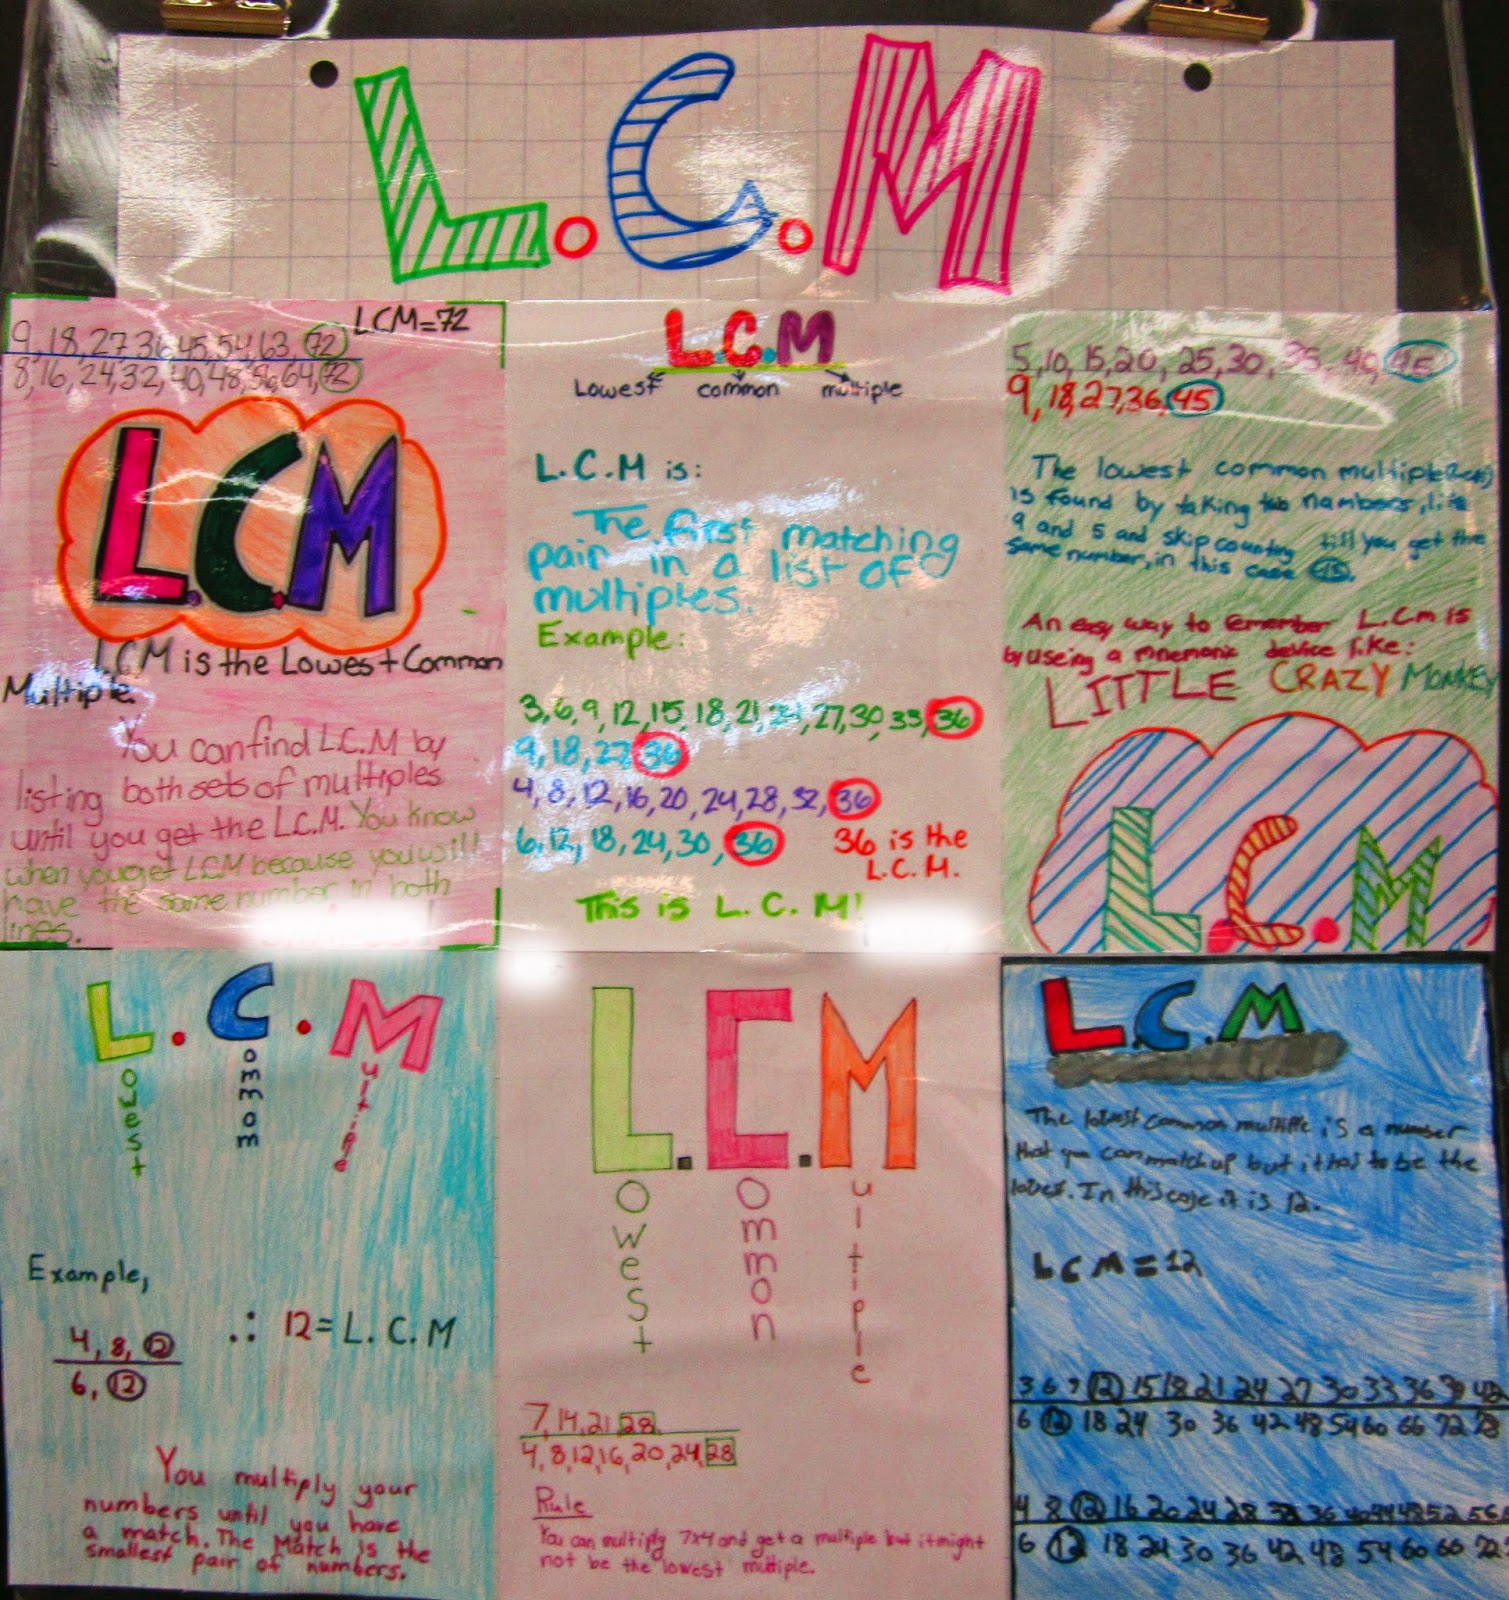 L.C.M
9, 18, 27, 36, 45, 54, 63, 72 LCM=72
8, 16, 24, 32, 40, 48, 56, 64, 72
L.C.M
LCM is the Lowest Common
Multiple.
You can find L.C.M by
listing both sets of multiples
until you get the L.C.M. You know
when you get LCM because you will
have the same number in both
lines.
L.C.M
Lowest common multiple
L.C.M is:
The first matching
pair in a list of
multiples.
Example:
3, 6, 9, 12, 15, 18, 21, 24, 27, 30, 33, 36
9, 18, 27, 36
4, 8, 12, 16, 20, 24, 28, 32, 36
6, 12, 18, 24, 30, 36 36 is the
L.C.M.
This is L.C.M!
5, 10, 15, 20, 25, 30, 35, 40, 45
9, 18, 27, 36, 45
The lowest common multiple
is found by taking two numbers, like
9 and 5 and skip counting till you get the
same number, in this case 45.
An easy way to remember L.C.m is
by useing a mnemonic device like:
LITTLE CRAZY MONKEY
L.C.M
L.C.M
Lowest Common Multiple
Example,
4, 8, 12
6, 12
∴ 12 = L.C.M
You multiply your
numbers until you have
a match. The Match is the
smallest pair of numbers.
L.C.M
Lowest Common Multiple
7, 14, 21, 28
4, 8, 12, 16, 20, 24, 28
Rule
You can multiply 7x4 and get a multiple but it might
not be the lowest multiple.
L.C.M
The lowest common multiple is a number
that you can match up but it has to be the
lowest. In this case it is 12.
LCM=12
3 6 9 12 15 18 21 24 27 30 33 36 39 42
6 12 18 24 30 36 42 48 54 60 66 72 78
4 8 12 16 20 24 28 32 36 40 44 48 52 56
6 12 18 24 30 36 42 48 54 60 66 72